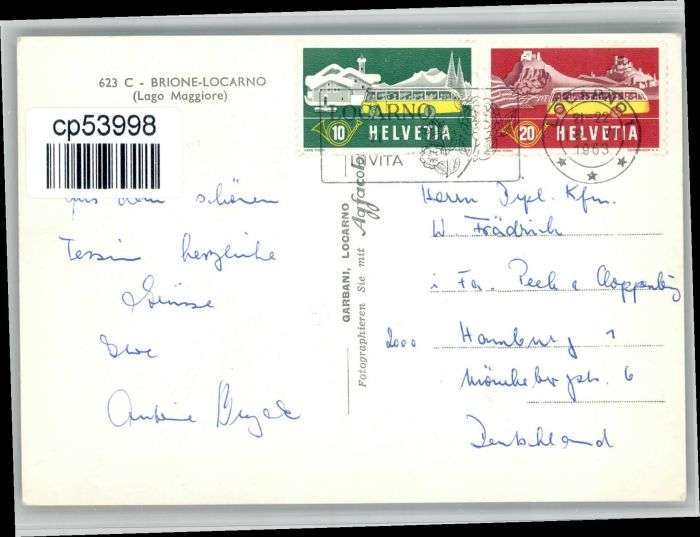 623 C - BRIONE-LOCARNO
(Lago Maggiore)
cp53998
aus dem schönen
Tessin herzliche
Grüsse
GARBANI, LOCARNO
Fotographieren Sie mit Agfacolor
10 HELVETIA
20 HELVETIA
LOCARNO
INVITA
21-22
1963
Herrn Dipl. Kfm.
W. Frädrich
i Fa. Peek & Cloppenburg
2000 Hamburg 1
Mönckebergstr. 6
Deutschland